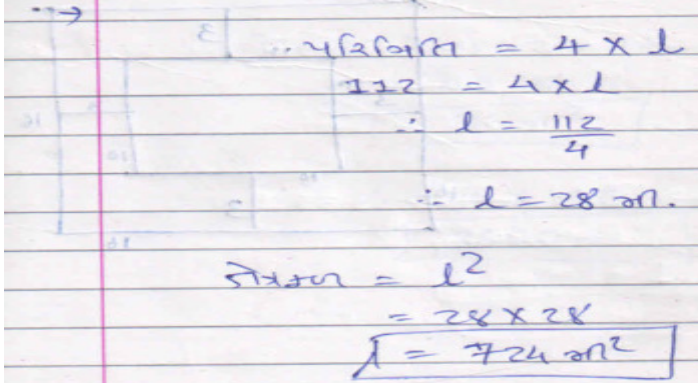 →
∴ પરિમિતિ = 4 × l
112 = 4 × l
∴ l = 112/4
∴ l = 28 મી.
ક્ષેત્રફળ = l²
= 28 × 28
l = 724 મી²